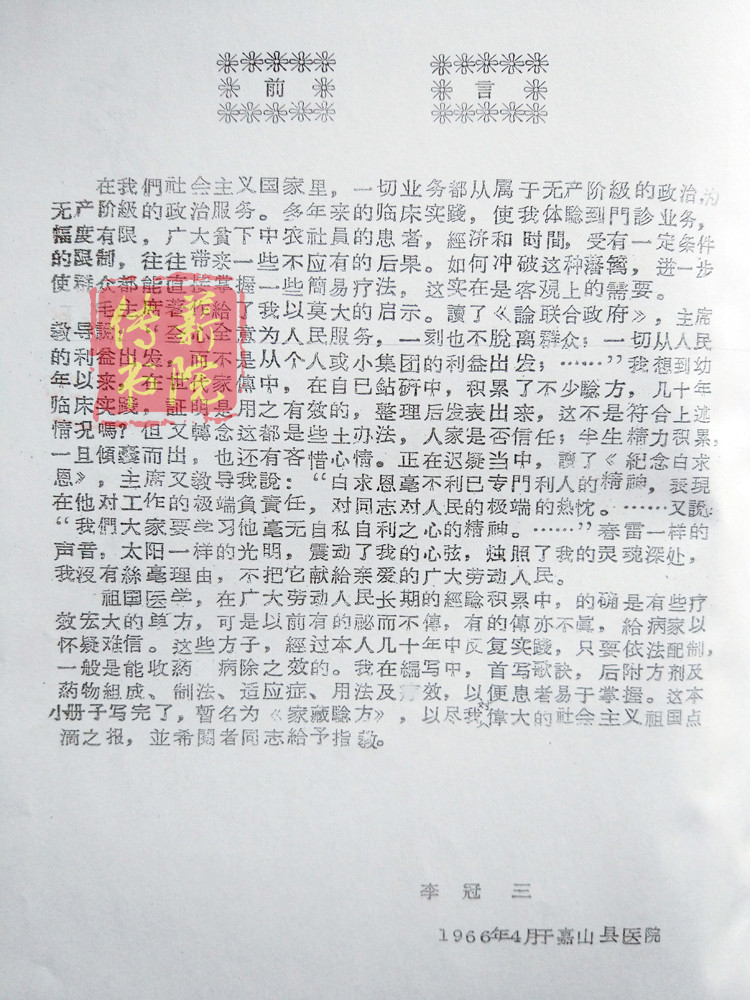 前言
在我們社会主义国家里，一切业务都从属于无产阶級的政治，为
无产阶級的政治服务。多年来的临床实践，使我体驗到門診业务，
幅度有限，广大貧下中农社員的患者，經济和时間，受有一定条件
的限制，往往带来一些不应有的后果。如何冲破这种藩篱，进一步
使群众都能直接掌握一些簡易疗法，这实在是客观上的需要。
毛主席著作給了我以莫大的启示。讀了《論联合政府》，主席
敎导說：“全心全意为人民服务，一刻也不脫离群众；一切从人民
的利益出发，而不是从个人或小集团的利益出发；……”我想到幼
年以来，在世我家傳中，在自己鉆硏中，积累了不少驗方，几十年
临床实践，証明是用之有效的，整理后发表出来，这不是符合上述
情况嗎？但又轉念这都是些土办法，人家是否信任；半生精力积累，
一旦傾囊而出，也还有吝惜心情。正在迟疑当中，讀了《紀念白求
恩》，主席又敎导我說：“白求恩毫不利已专門利人的精神，表現
在他对工作的极端負責任，对同志对人民的极端的热忱。……又說：
“我們大家要学习他毫无自私自利之心的精神。……”春雷一样的
声音，太阳一样的光明，震动了我的心弦，烛照了我的灵魂深处，
我沒有絲毫理由，不把它献給亲爱的广大劳动人民。
祖国医学，在广大劳动人民长期的經驗积累中，的确是有些疗
效宏大的单方，可是以前有的祕而不傳，有的傳亦不眞，給病家以
怀疑难信。这些方子，經过本人几十年中反复实践，只要依法配制，
一般是能收药 病除之效的。我在編写中，首写歌訣，后附方剂及
药物組成、制法、适应症、用法及疗效，以便患者易于掌握。这本
小册子写完了，暫名为《家藏驗方》，以尽我对偉大的社会主义祖国点
滴之报，並希閱者同志給予指敎。
李冠三
1966年4月于嘉山县医院